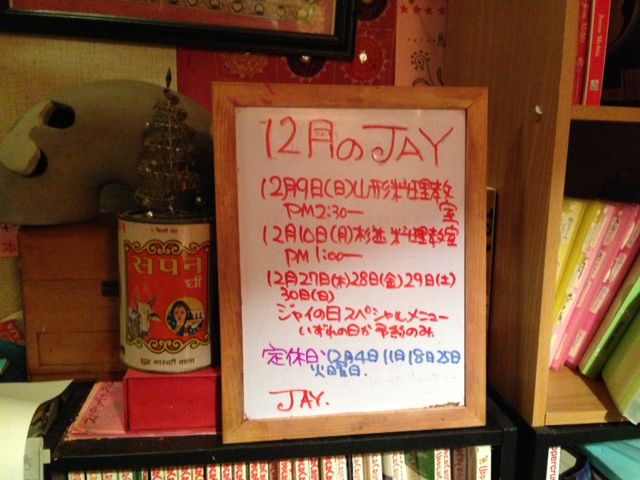 12月のJAY
12月9日(日)山形料理教室
PM2:30ー
12月10日(月)杉並料理教室
PM1:00ー
12月27日(木)28日(金)29日(土)
30日(日)
ジャイの日スペシャルメニュー
いずれの日か予約のみ.
定休日、12月4日11日18日25日
火曜日.
JAY.
सपन
घी